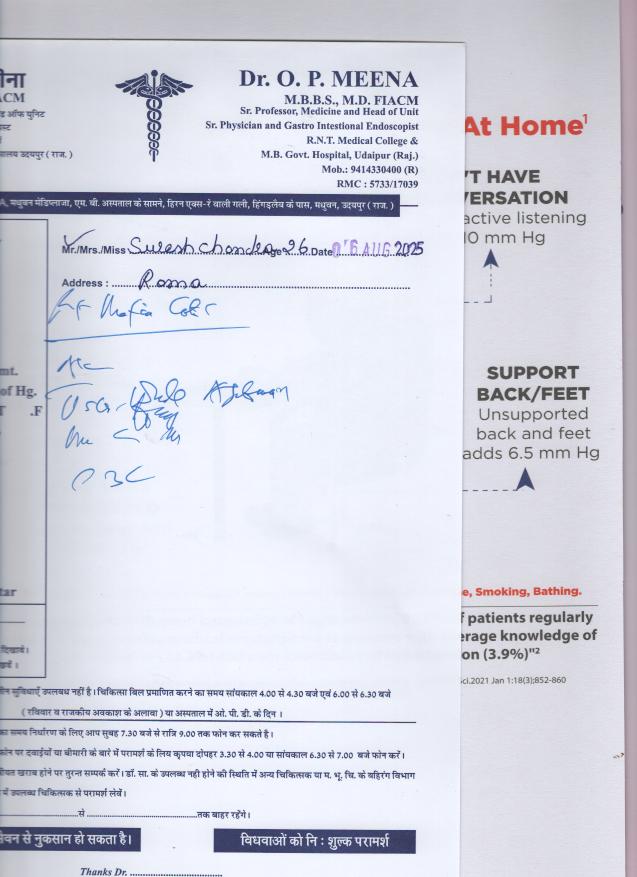 ीना
ACM
ड ऑफ यूनिट
ालय उदयपुर ( राज. )
Dr. O. P. MEENA
M.B.B.S., M.D. FIACM
Sr. Professor, Medicine and Head of Unit
Sr. Physician and Gastro Intestional Endoscopist
R.N.T. Medical College &
M.B. Govt. Hospital, Udaipur (Raj.)
Mob.: 9414330400 (R)
RMC : 5733/17039
A, मधुवन मेडिप्लाजा, एम. बी. अस्पताल के सामने, हिरन एक्स-रे वाली गली, हिंगड़लैव के पास, मधुवन, उदयपुर ( राज. )
Mr./Mrs./Miss Suresh chandra Age 26 Date 06 AUG 2025
Address : Roma
mt.
of Hg.
T .F
CBC
tar
दिखावें।
ीन सुविधाएँ उपलब्ध नहीं है। चिकित्सा बिल प्रमाणित करने का समय सांयकाल 4.00 से 4.30 बजे एवं 6.00 से 6.30 बजे
( रविवार व राजकीय अवकाश के अलावा ) या अस्पताल में ओ. पी. डी. के दिन ।
का समय निर्धारण के लिए आप सुबह 7.30 बजे से रात्रि 9.00 तक फोन कर सकते है।
फोन पर दवाईयों या बीमारी के बारे में परामर्श के लिय कृपया दोपहर 3.30 से 4.00 या सांयकाल 6.30 से 7.00 बजे फोन करें।
ीयत खराब होने पर तुरन्त सम्पर्क करें। डॉ. सा. के उपलब्ध नही होने की स्थिति में अन्य चिकित्सक या म. भू. चि. के बहिरंग विभाग
में उपलब्ध चिकित्सक से परामर्श लेवें।
से तक बाहर रहेंगे।
ेवन से नुकसान हो सकता है।
विधवाओं को नि : शुल्क परामर्श
Thanks Dr.
At Home1
'T HAVE
VERSATION
active listening
10 mm Hg
SUPPORT
BACK/FEET
Unsupported
back and feet
adds 6.5 mm Hg
e, Smoking, Bathing.
f patients regularly
erage knowledge of
on (3.9%)"2
Sci.2021 Jan 1:18(3);852-860